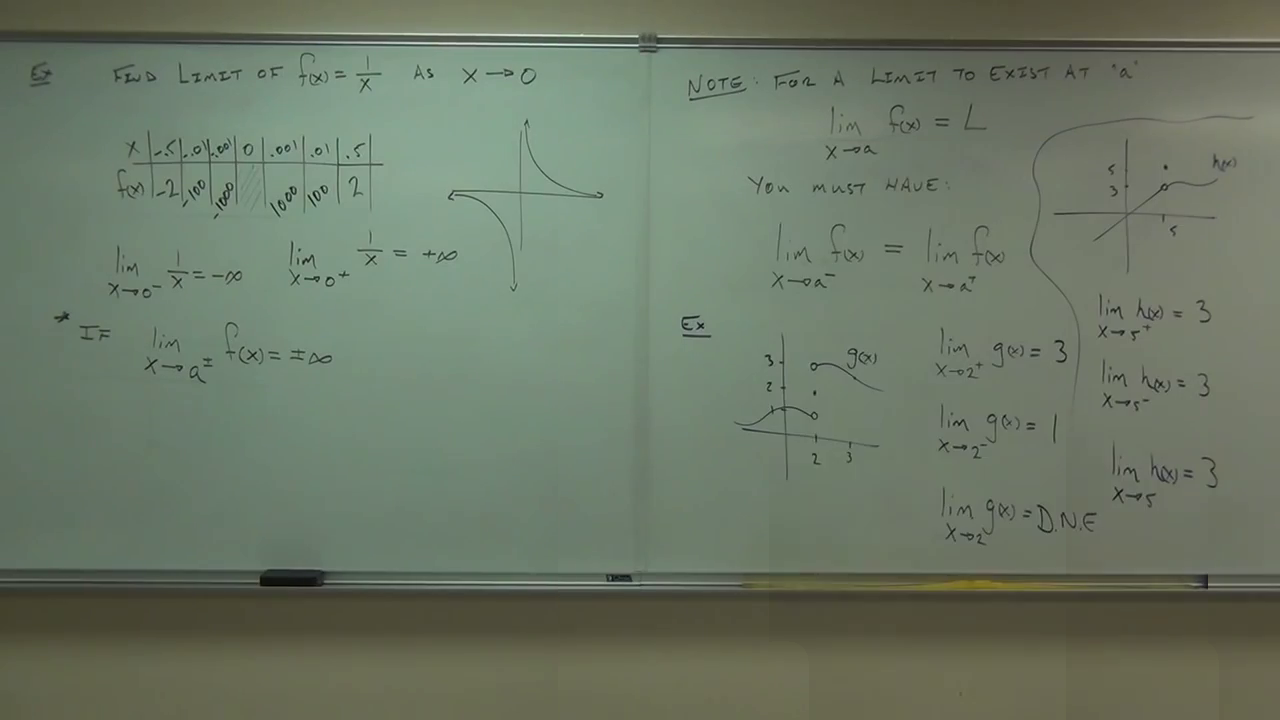 Ex FIND LIMIT OF f(x) = 1/x AS x → 0
x | -.5 | -.01 | -.001 | 0 | .001 | .01 | .5
f(x) | -2 | -100 | -1000 | | 1000 | 100 | 2
lim x→0⁻ 1/x = -∞ lim x→0⁺ 1/x = +∞
* IF lim x→a± f(x) = ±∞
NOTE: FOR A LIMIT TO EXIST AT "a"
lim x→a f(x) = L
YOU MUST HAVE:
lim x→a⁻ f(x) = lim x→a⁺ f(x)
Ex
g(x)
3
2
1
2 3
lim x→2⁺ g(x) = 3
lim x→2⁻ g(x) = 1
lim x→2 g(x) = D.N.E
h(x)
5
3
5
lim x→5⁺ h(x) = 3
lim x→5⁻ h(x) = 3
lim x→5 h(x) = 3